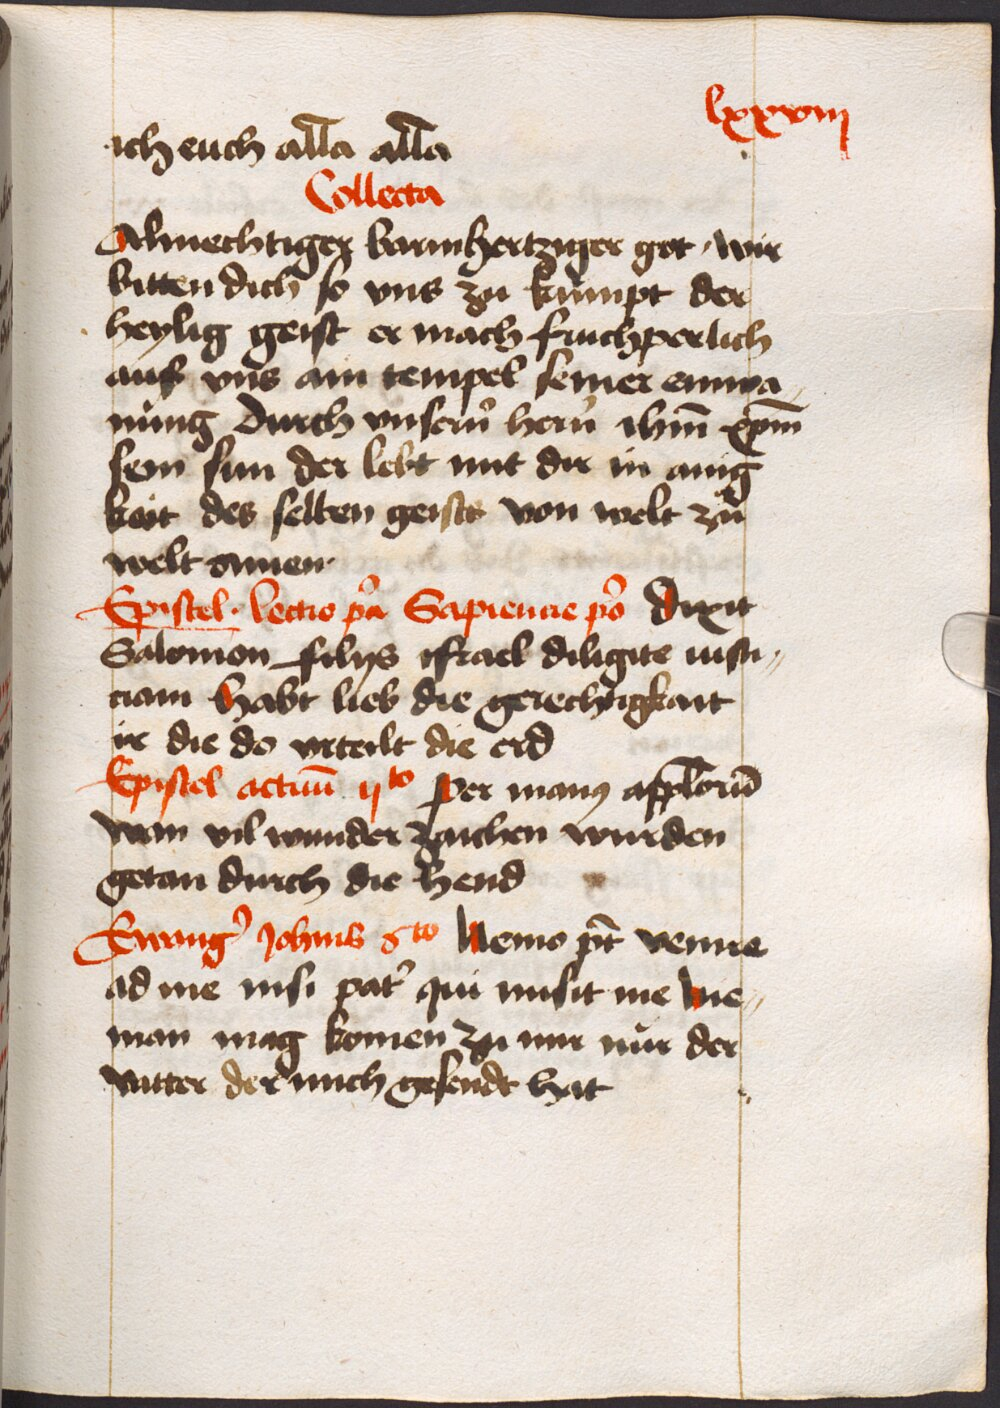 lxxxviij
ich euch all̅a all̅a
Collecta
Almechtiger barmhertziger got · wir
bitten dich so vns zu kumpt der
heylig geist er mach fruchperlich
auß vns ain tempel seiner einwa„
nung durch vnsern̉ hern̉ ihm̅ xpm̅
sein sun der lebt mit dir in ainig
kait des selben geists von welt zu
welt amen·
Epistel · lectio p̉a Sapiencie p̉o Dixit
Salomon filijs israel diligite iusti„
ciam habt lieb die gerechtigkait
ir die do vrteilt die erd
Epistel actuu̅ ijᵗᵒ Per manꝰ applo̅ru̅
wan vil wunder zaichen wurden
getan durch die hend
Ewang̉ Johnis 6ᵗᵒ Nemo pt̅ venire
ad me nisi pat̉ qui misit me Nie„
man mag komen zu mir nur der
vatter der mich gesendt hat